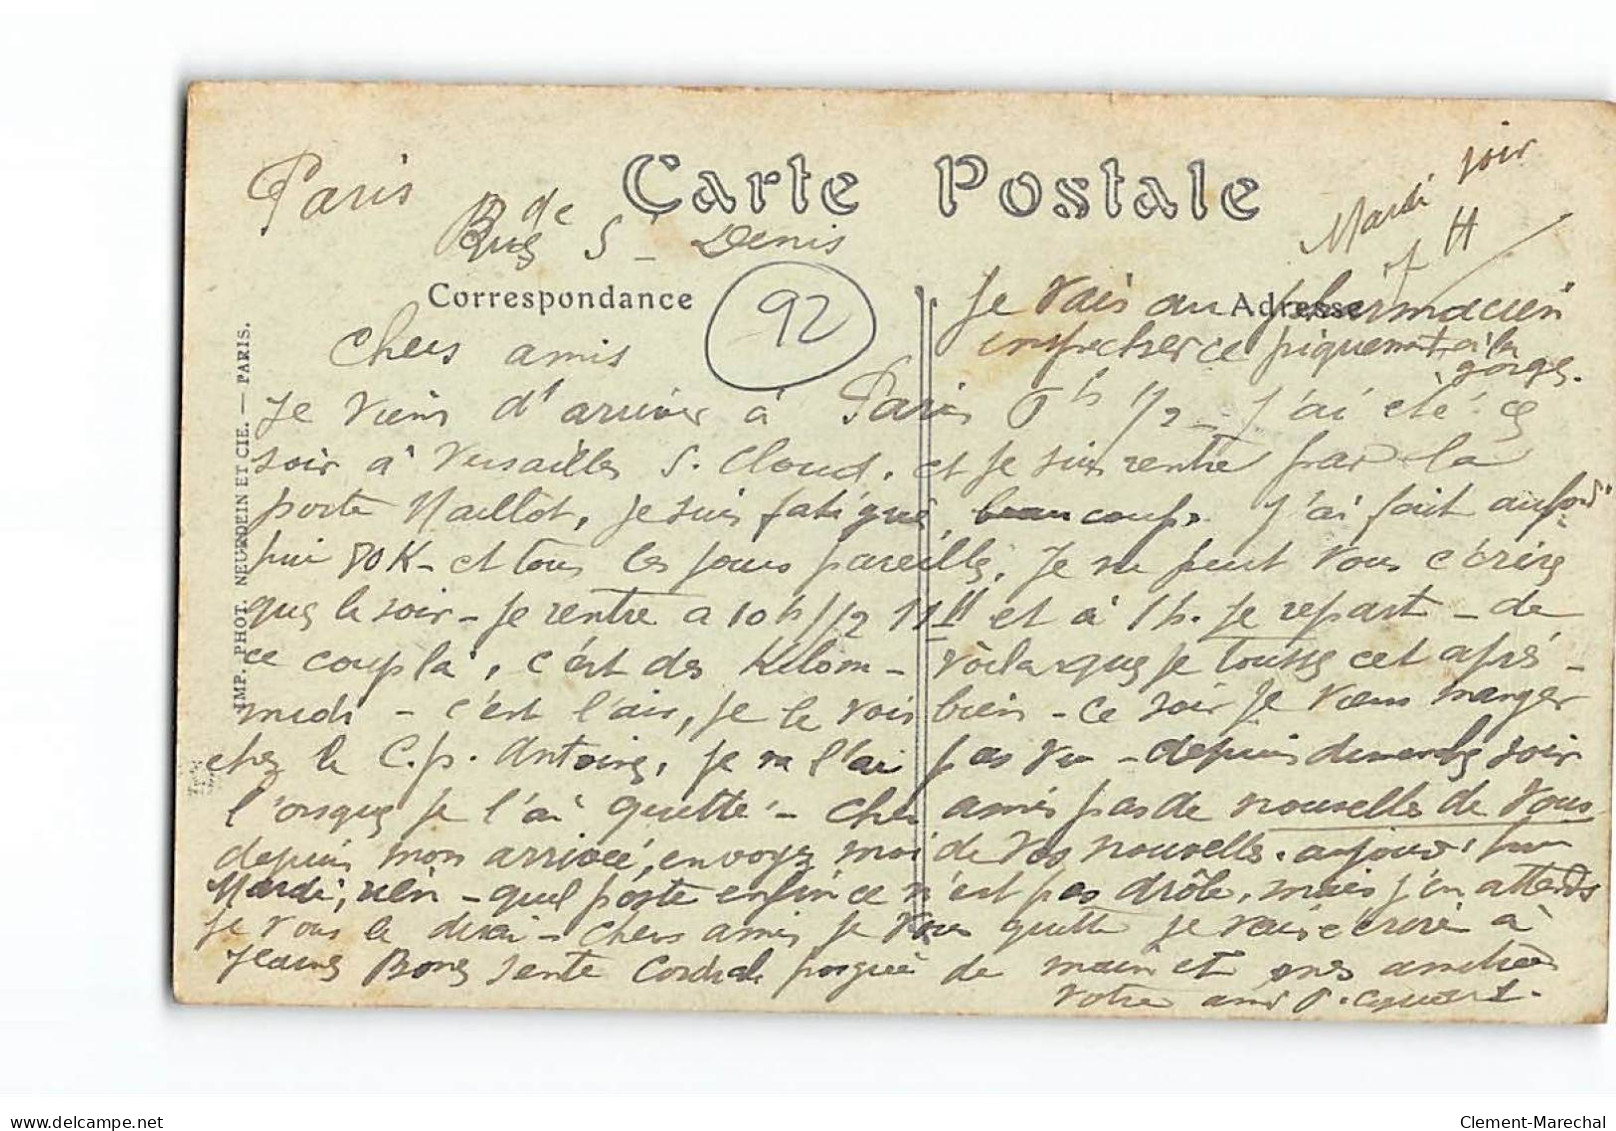 Carte Postale
Paris
Rue de St Denis
Mardi soir
H
Correspondance
Adresse
92
Je vais au pharmacien
ce piquement à la
gorge.
Chers amis
Je viens d'arriver à Paris 8h 1/2 - J'ai été ce
soir à Versailles S. Cloud. et je suis rentré par la
porte Maillot, je suis fatigué, beaucoup. J'ai fait aujourd'
hui 80K - et tous les jours pareilles. Je ne peut vous écrire
que le soir - je rentre a 10h 1/2 11H et à 1h. je repart - de
ce coup là, c'est des Kilom - voila que je tousse cet après -
midi - c'est l'air, je le vois bien - ce soir je veux manger
chez le C.p. Antoine, je ne l'ai pas vu - depuis dimanche soir
l'orsque je l'ai quitté - Cher amis pas de nouvelles de vous
depuis mon arrivée, envoyez moi de vos nouvelles. aujourd'hui
Mardi, rien - quel poste enfin ce n'est pas drôle, mais j'en attends
je vous le dirai - chers amis je vous quitte je vais écrire à
Jeanne Bonne sente Cordiale poignée de main et mes amitiés
votre ami
IMP. PHOT. NEURDEIN ET CIE. — PARIS.
www.delcampe.net
Clement-Marechal